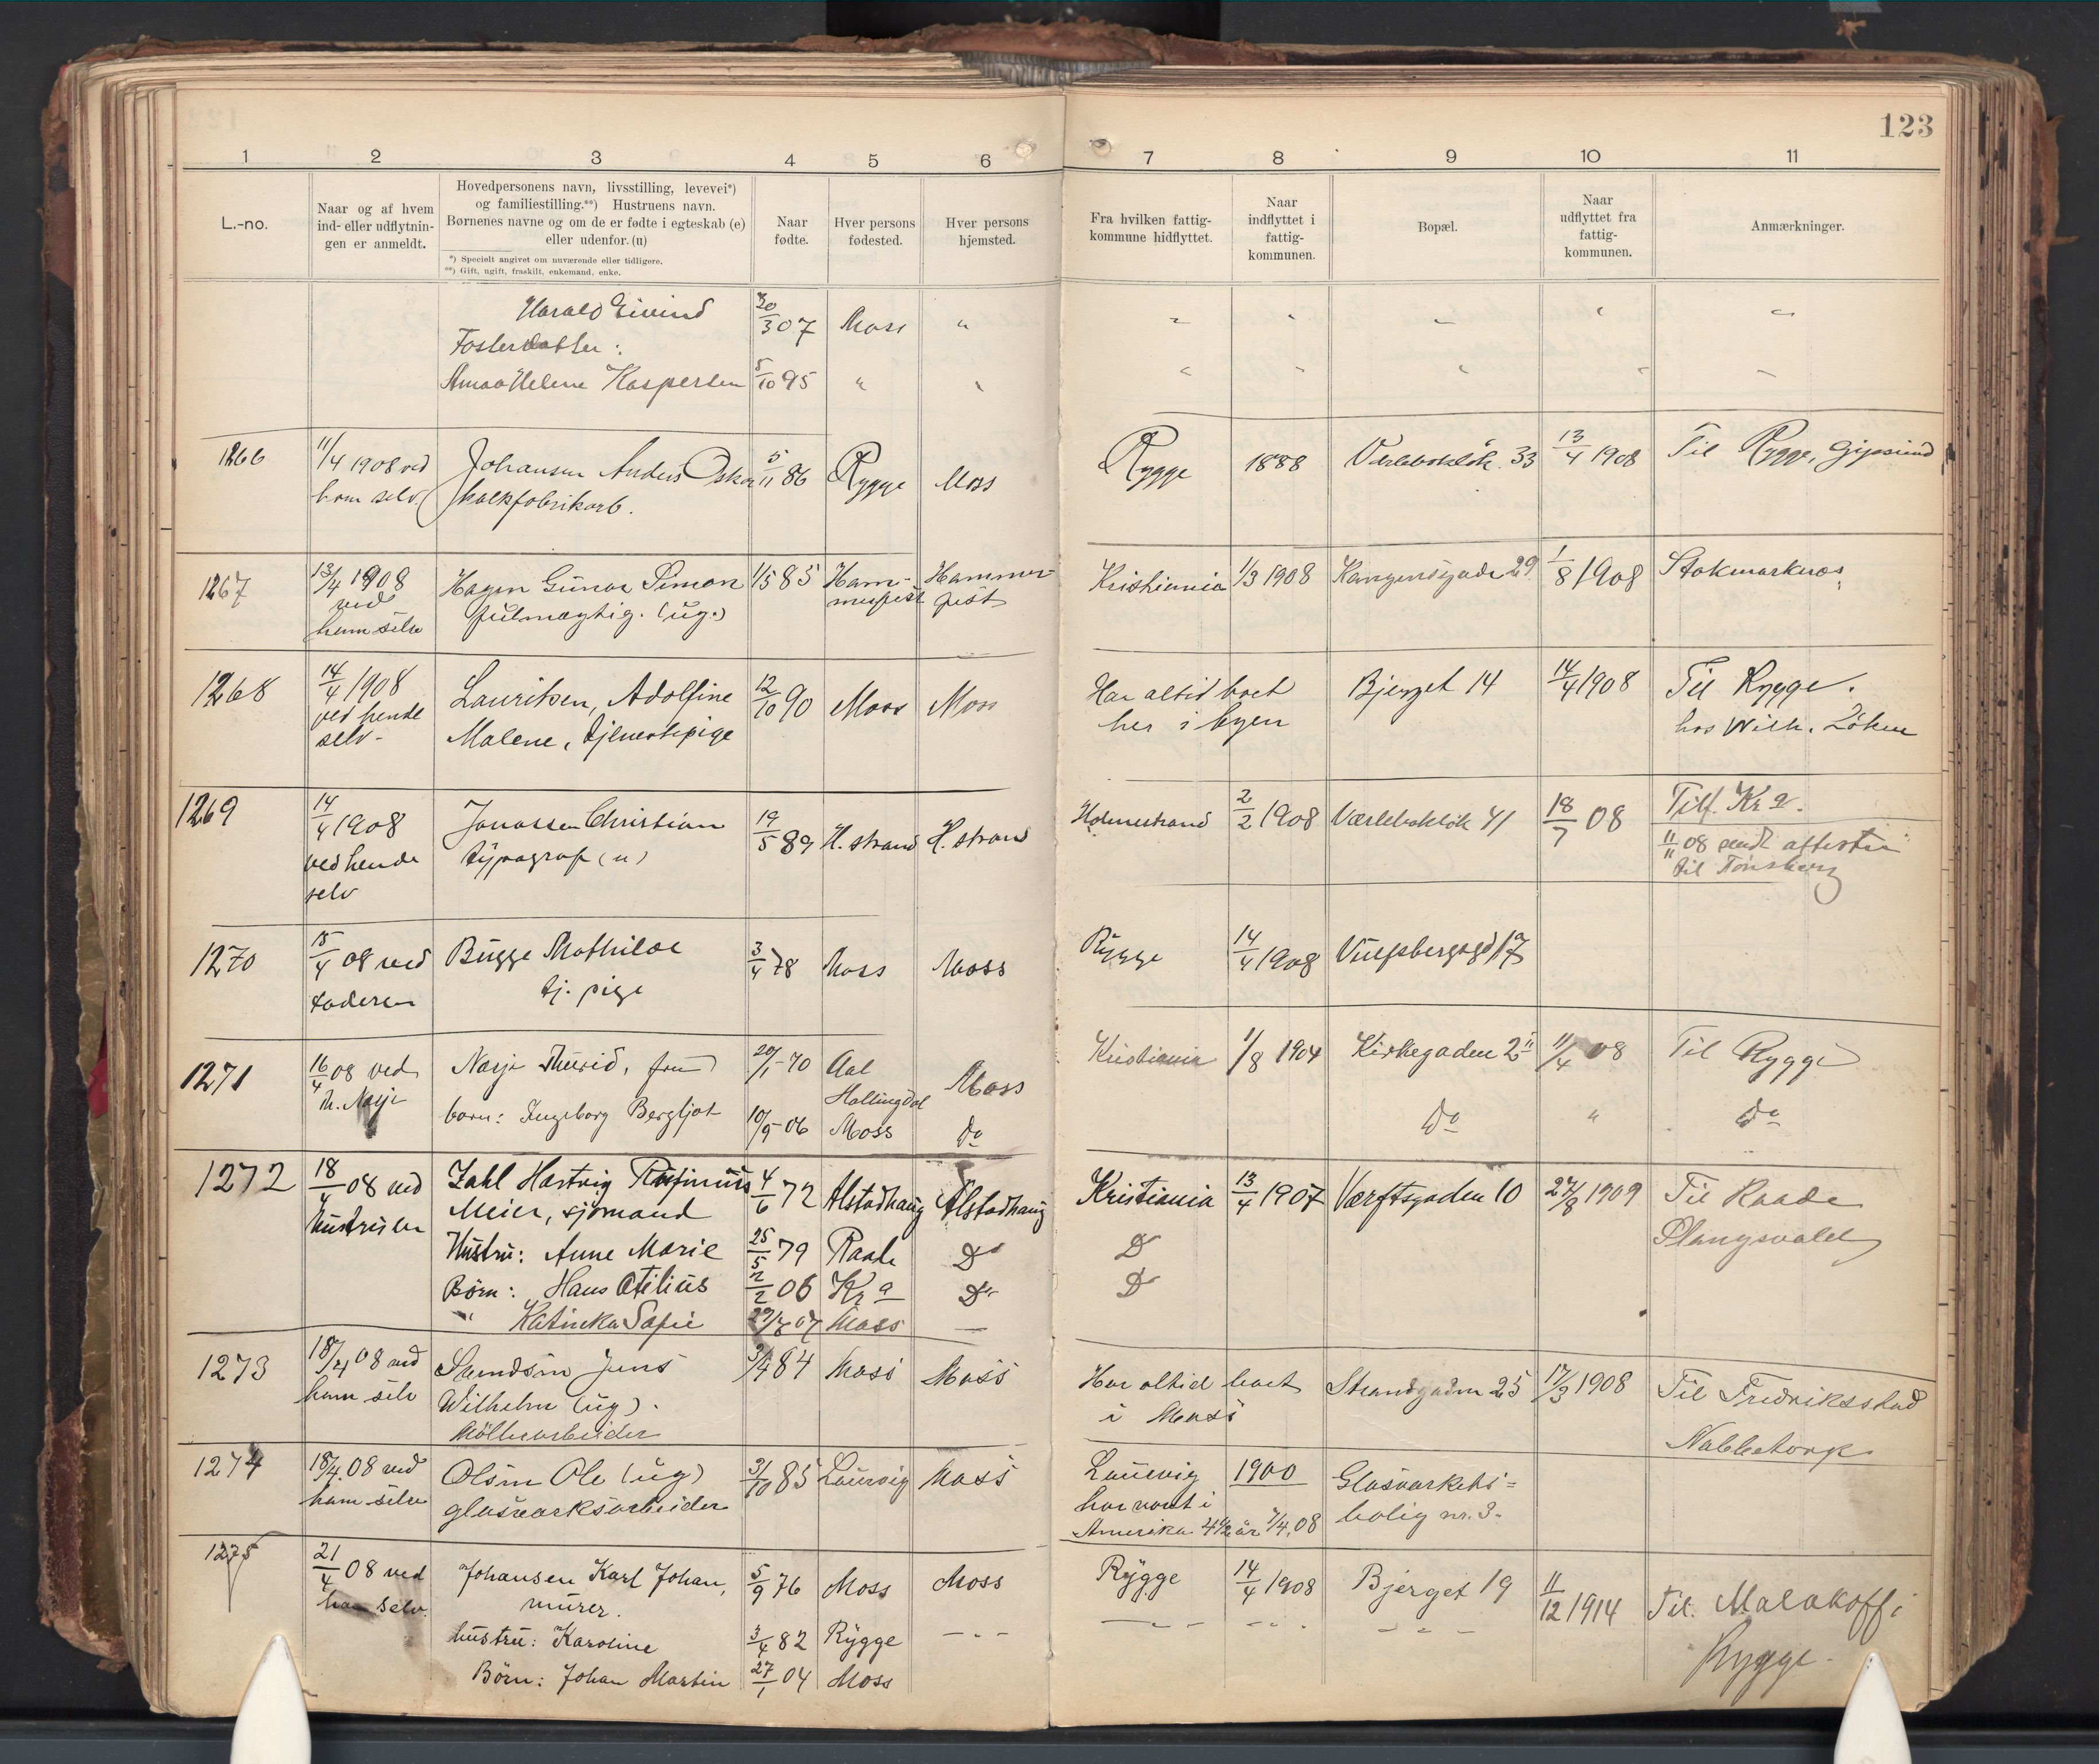 123
1 2 3 4 5 6 7 8 9 10 11
L.-no.
Naar og af hvem
ind- eller udflytnin-
gen er anmeldt.
Hovedpersonens navn, livsstilling, levevei*)
og familiestilling.**) Hustruens navn.
Børnenes navne og om de er fødte i egteskab (e)
eller udenfor. (u)
*) Specielt angivet om nuværende eller tidligere.
**) Gift, ugift, fraskilt, enkemand, enke.
Naar
fødte.
Hver persons
fødested.
Hver persons
hjemsted.
Fra hvilken fattig-
kommune hidflyttet.
Naar
indflyttet i
fattig-
kommunen.
Bopæl.
Naar
udflyttet fra
fattig-
kommunen.
Anmærkninger.
Harald Eivind 30/3 07 Moss "
Fosterdatter:
Anna Helene Kaspersen 5/10 95 " "
1266 11/4 1908 ved Johansen Anders Oskar 5/11 86 Rygge Moss Rygge 1888 33 13/4 1908 Til Rygge,
ham selv.
1267 13/4 1908 Hagen Gunar Simon 1/5 85 Ham- Hammer- Kristiania 1/3 1908 29 1/8 1908 Stokmarknes
ved fulmægtig. (ug.) merfest fest
ham selv
1268 14/4 1908 Lauritsen, Adolfine 12/10 90 Moss Moss Har altid boet Bjerget 14 14/4 1908 Til Rygge.
ved hende Malene, tjenestepige her i byen hos Wilh. Löken
selv-
1269 14/4 1908 Jonassen Christian 19/5 89 H. strand H. strand Holmestrand 2/2 1908 Værlebaklök 41 18/7 08 Tilf. Kr a.
ved hende typograf (u) 11/11 08 sendt attester
selv til Tönsberg
1270 15/4 08 ved Bugge Mathilde 3/4 78 Moss Moss Rygge 14/4 1908 17
faderen tj. pige
1271 16/4 08 ved Narje Thurid, fru 20/1-70 Aal Moss Kristiania 1/8 1904 Kirkegaden 25 11/4 08 Til Rygge
Th. Narje Hallingdal
barn: Ingeborg Bergljot 10/9-06 Moss Do Do " Do
1272 18/4 08 ved Zahl Hartvig Rufinius 4/6 72 Alstadhaug Alstadhaug Kristiania 13/4 1907 Værftsgaden 10 27/8 1909 Til Raade
Hustruen Meier, sjömand
Hustru: Anne Marie 25/5 79 Raade Do Do
Börn: Hans Otilius 2/2 06 Kr a Do Do
" Katinka Sofie 07 Moss —
1273 18/4 08 ved Jens 84 Moss Moss Har altid boet Strandgaden 25 17/3 1908 Til Fredriksstad
ham selv Wilhelm (ug). i Moss
Möllearbeider Nabbetorp
1274 18/4 08 ved Olsen Ole (ug) 3/10 85 Laurvig Moss Laurvig 1900 Glasværkets=
ham selv glasværksarbeider har vært i bolig nr. 3.
Amerika 4½ år 7/4.08
1275 21/4 08 ved Johansen Karl Johan, 5/9 76 Moss Moss Rygge 14/4 1908 Bjerget 19 11/12 1914 Til. Malakoff i
ham selv. murer.
Rygge
hustru: Karoline 3/4 82 Rygge — " —
Börn: Johan Martin 27/1 04 Moss